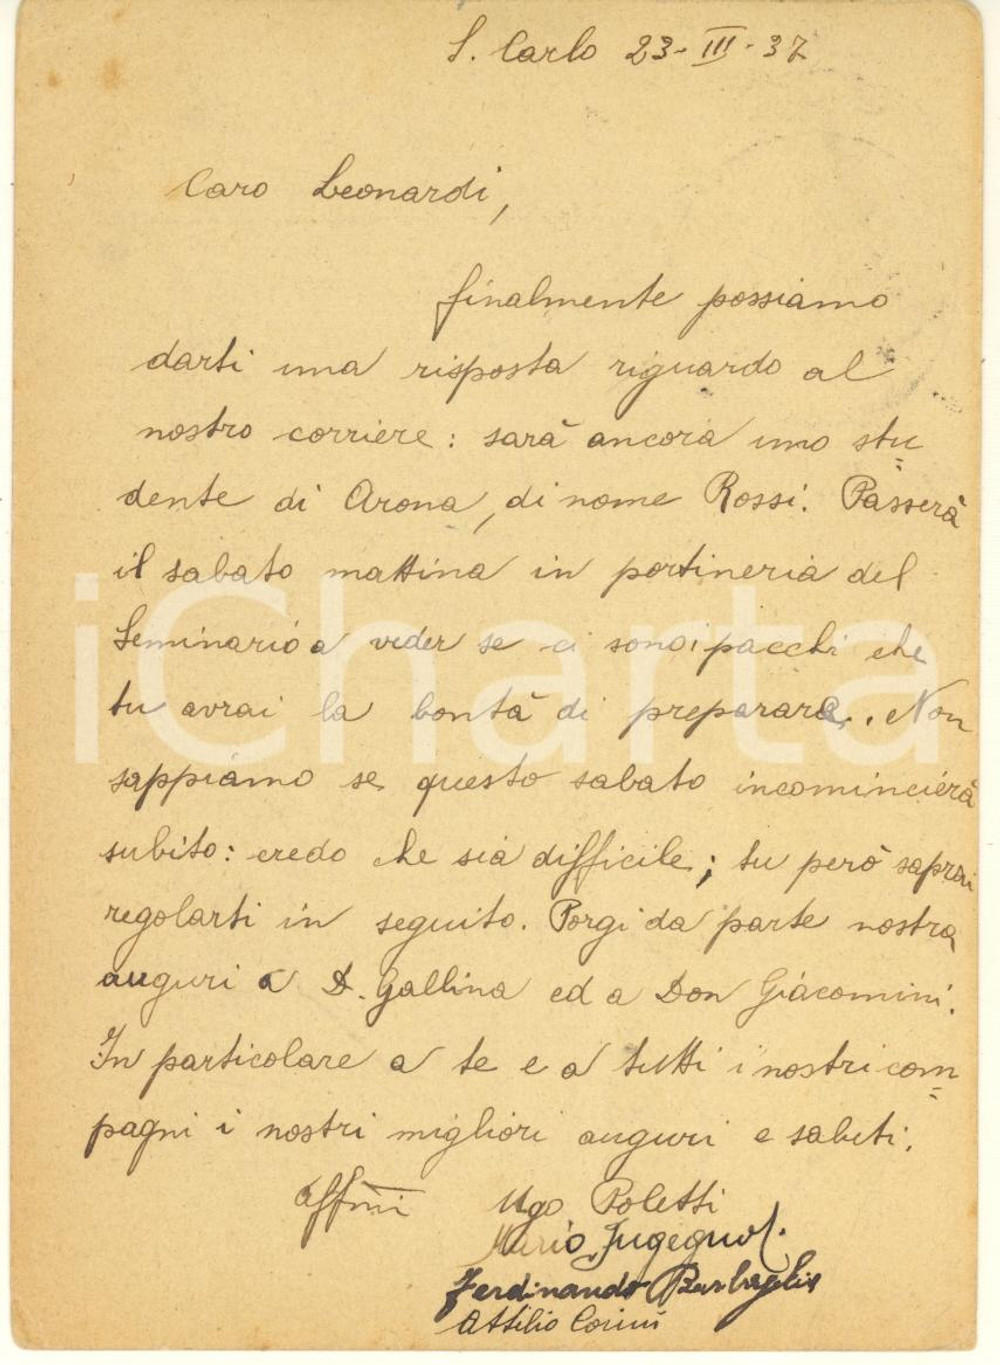 S. Carlo 23-III-37
Caro Leonardi,
finalmente possiamo
darti una risposta riguardo al
nostro corriere: sarà ancora uno stu=
dente di Arona, di nome Rossi. Passerà
il sabato mattina in portineria del
Seminario a veder se ci sono i pacchi che
tu avrai la bontà di preparare. Non
sappiamo se questo sabato incomincierà
subito: credo che sia difficile; tu però saprai
regolarti in seguito. Porgi da parte nostra
auguri a D. Gallina ed a Don Giacomini.
In particolare a te e a tutti i nostri com=
pagni i nostri migliori auguri e saluti.
affmi Ugo Poletti
Mario
Ferdinando
Attilio
iCharta